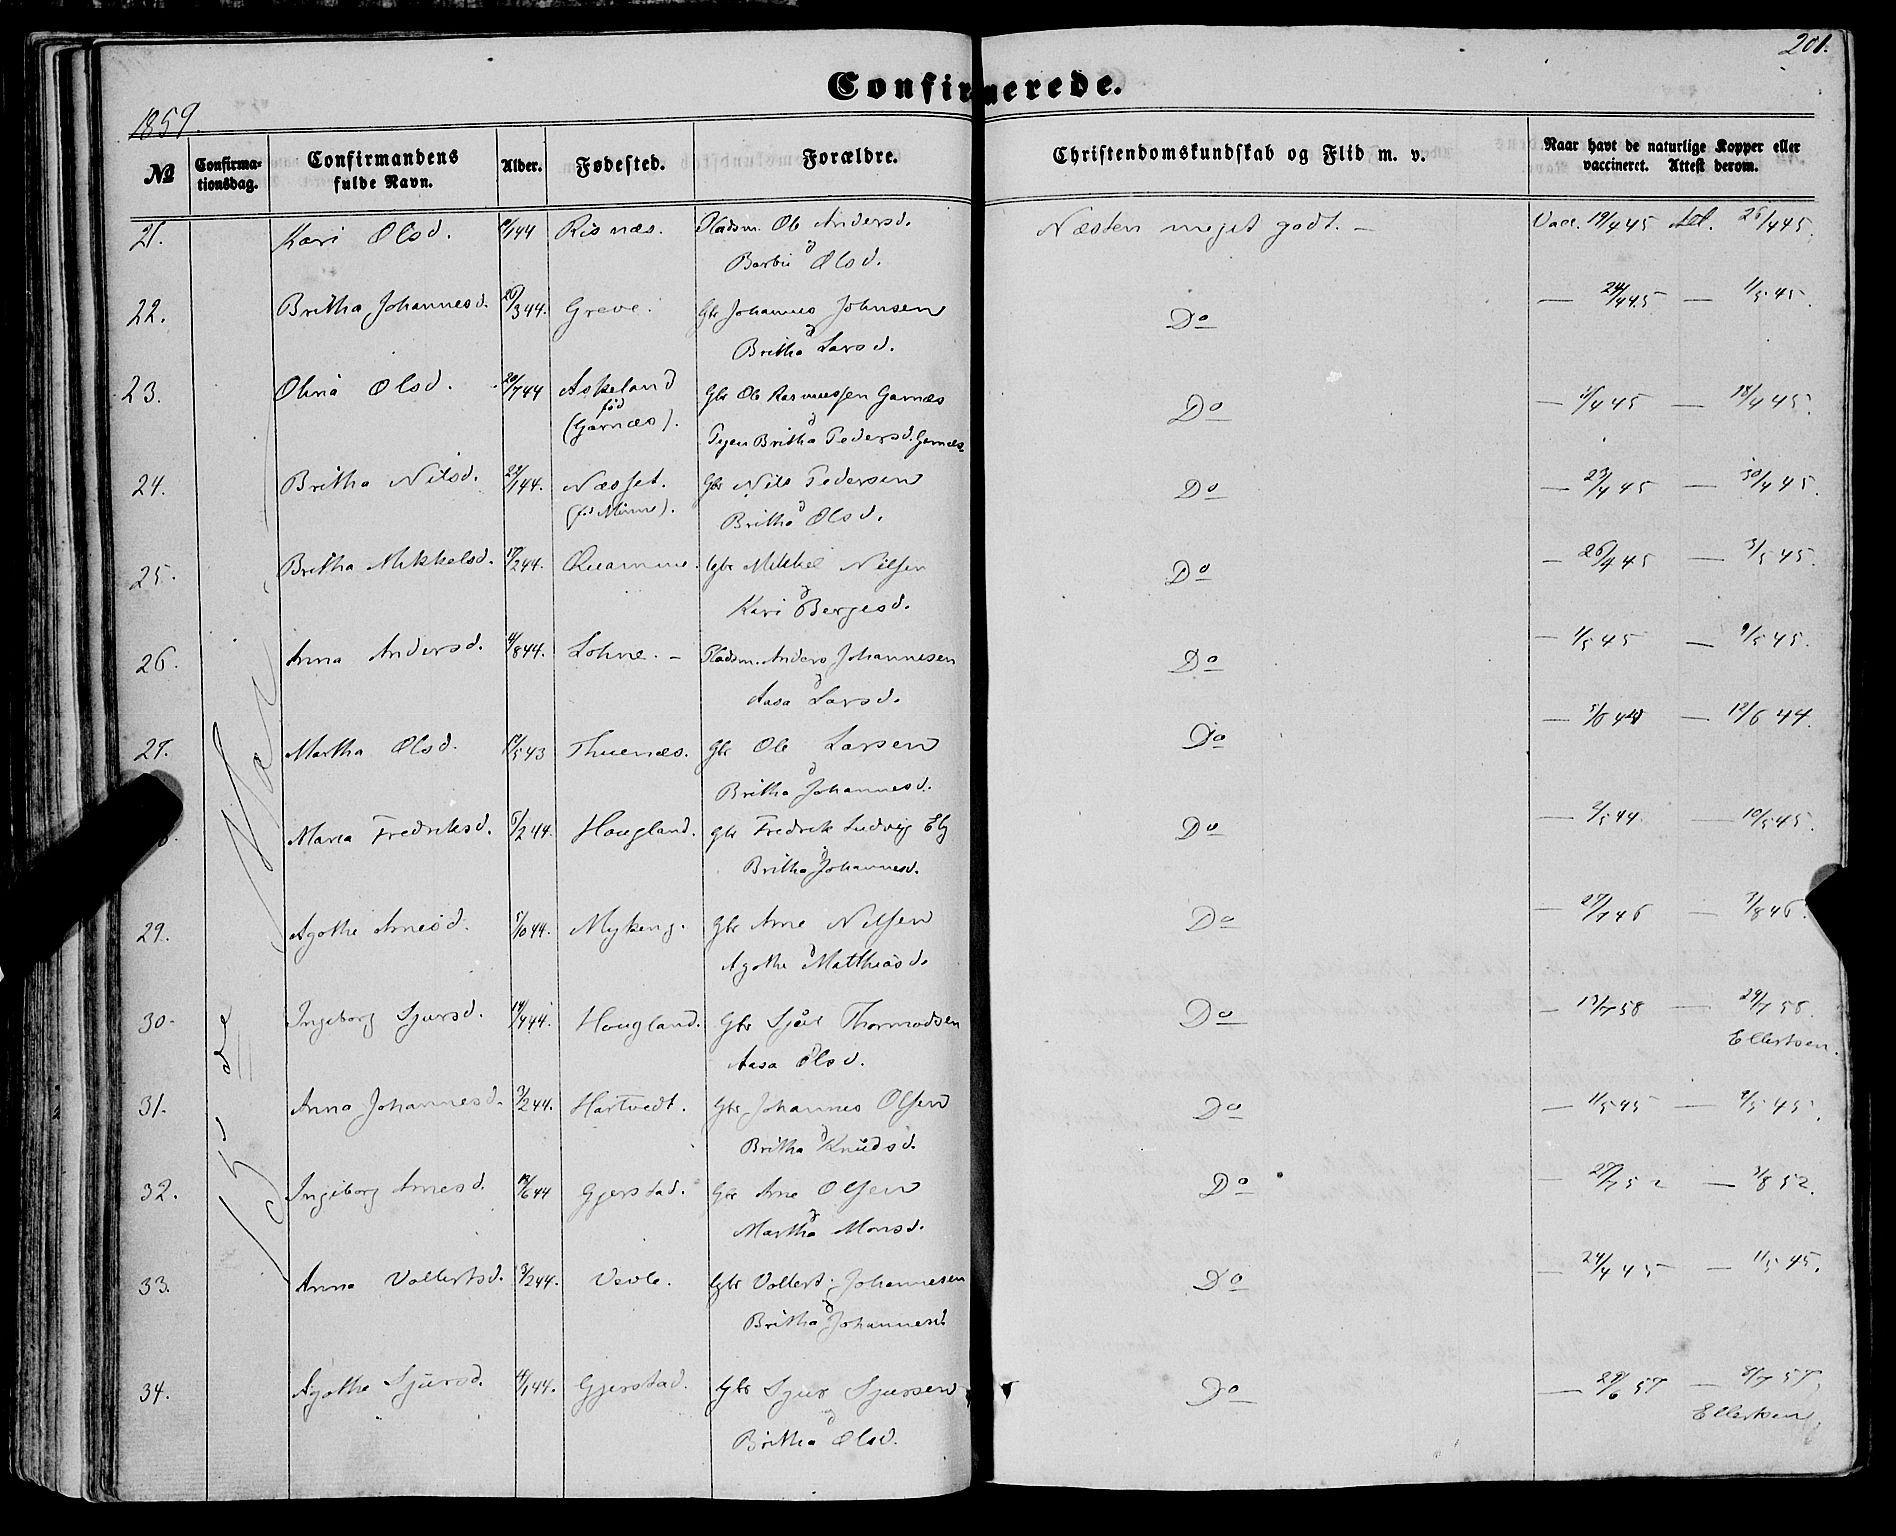 201.
Confirmerede.
1859.
№ Confirma-tionsdag. Confirmandens fulde Navn. Alder. Fødested. Forældre. Christendomskundskab og Flid m. v. Naar havt de naturlige Kopper eller vaccineret. Attest derom.
21. Kari Olsd. /144 Risnæs. Pladsm. Ole Andersd. Næsten meget godt. — Vacc. 19/4 45 Att. 25/4 45.
Barbu Olsd.
22. Britha Johannesd. 20/3 44. Greve. Gbr Johannes Johnsen Do — 24/4 45 — 11/5 45.
Britha Larsd.
23. Olina Olsd. 20/7 44 Askeland Gbr Ole Rasmussen Garnæs Do — /4 45 — 18/4 45.
fød
(Garnæs). Britha Pedersd. Garnæs
24. Britha Nilsd. 22/1 44. Næsset. Gbr Nils Pedersen Do — 23/4 45 — 30/4 45.
Britha Olsd.
25. Britha Mikkelsd. 17/2 44. Qvamme. Gbr Mikkel Nilsen Do — 26/4 45 — 3/5 45.
Kari Bergesd.
26. Anna Andersd. 4/8 44. Lohne. — Pladsm. Anders Johannesen Do — 1/5 45 — 9/5 45.
Aasa Larsd.
27. Martha Olsd. /5 43 Thuenæs. Gbr Ole Larsen Do — 5/6 44 — 12/6 44.
Britha Johannesd.
Maria Fredriksd. /2 44. Hougland. Gbr Fredrik Ludvig Do — 2/5 44 — 10/5 45.
Britha Johannesd.
29. Agothe Arnesd. 44. Mykeng. Gbr Arne Nilsen Do — 27/7 46 — 3/8 46.
Agothe Matthiasd.
30. Ingeborg Sjursd. 14/4 44. Hougland. Gbr Thormodsen Do — 13/7 58 — 29/7 58.
Aasa Olsd. Ellertsen.
31. Anna Johannesd. 3/2 44. Hartvedt. Gbr Johannes Olsen Do — 11/5 45 — /5 45.
Britha Knudsd.
32. Ingeborg Arnesd. 12/6 44 Gjerstad. Gbr Arne Olsen Do — 27/7 52 — 3/8 52.
Martha Monsd.
33. Anna Vollertsd. 3/2 44. Vevle. Gbr Vollert Johannesen Do — 24/4 45 — 11/5 45.
Britha Johannesd
34. Agothe Sjursd. /1 44. Gjerstad. Gbr Sjur Sjursen Do — 29/6 57 — 8/7 57,
Britha Olsd. Ellertsen